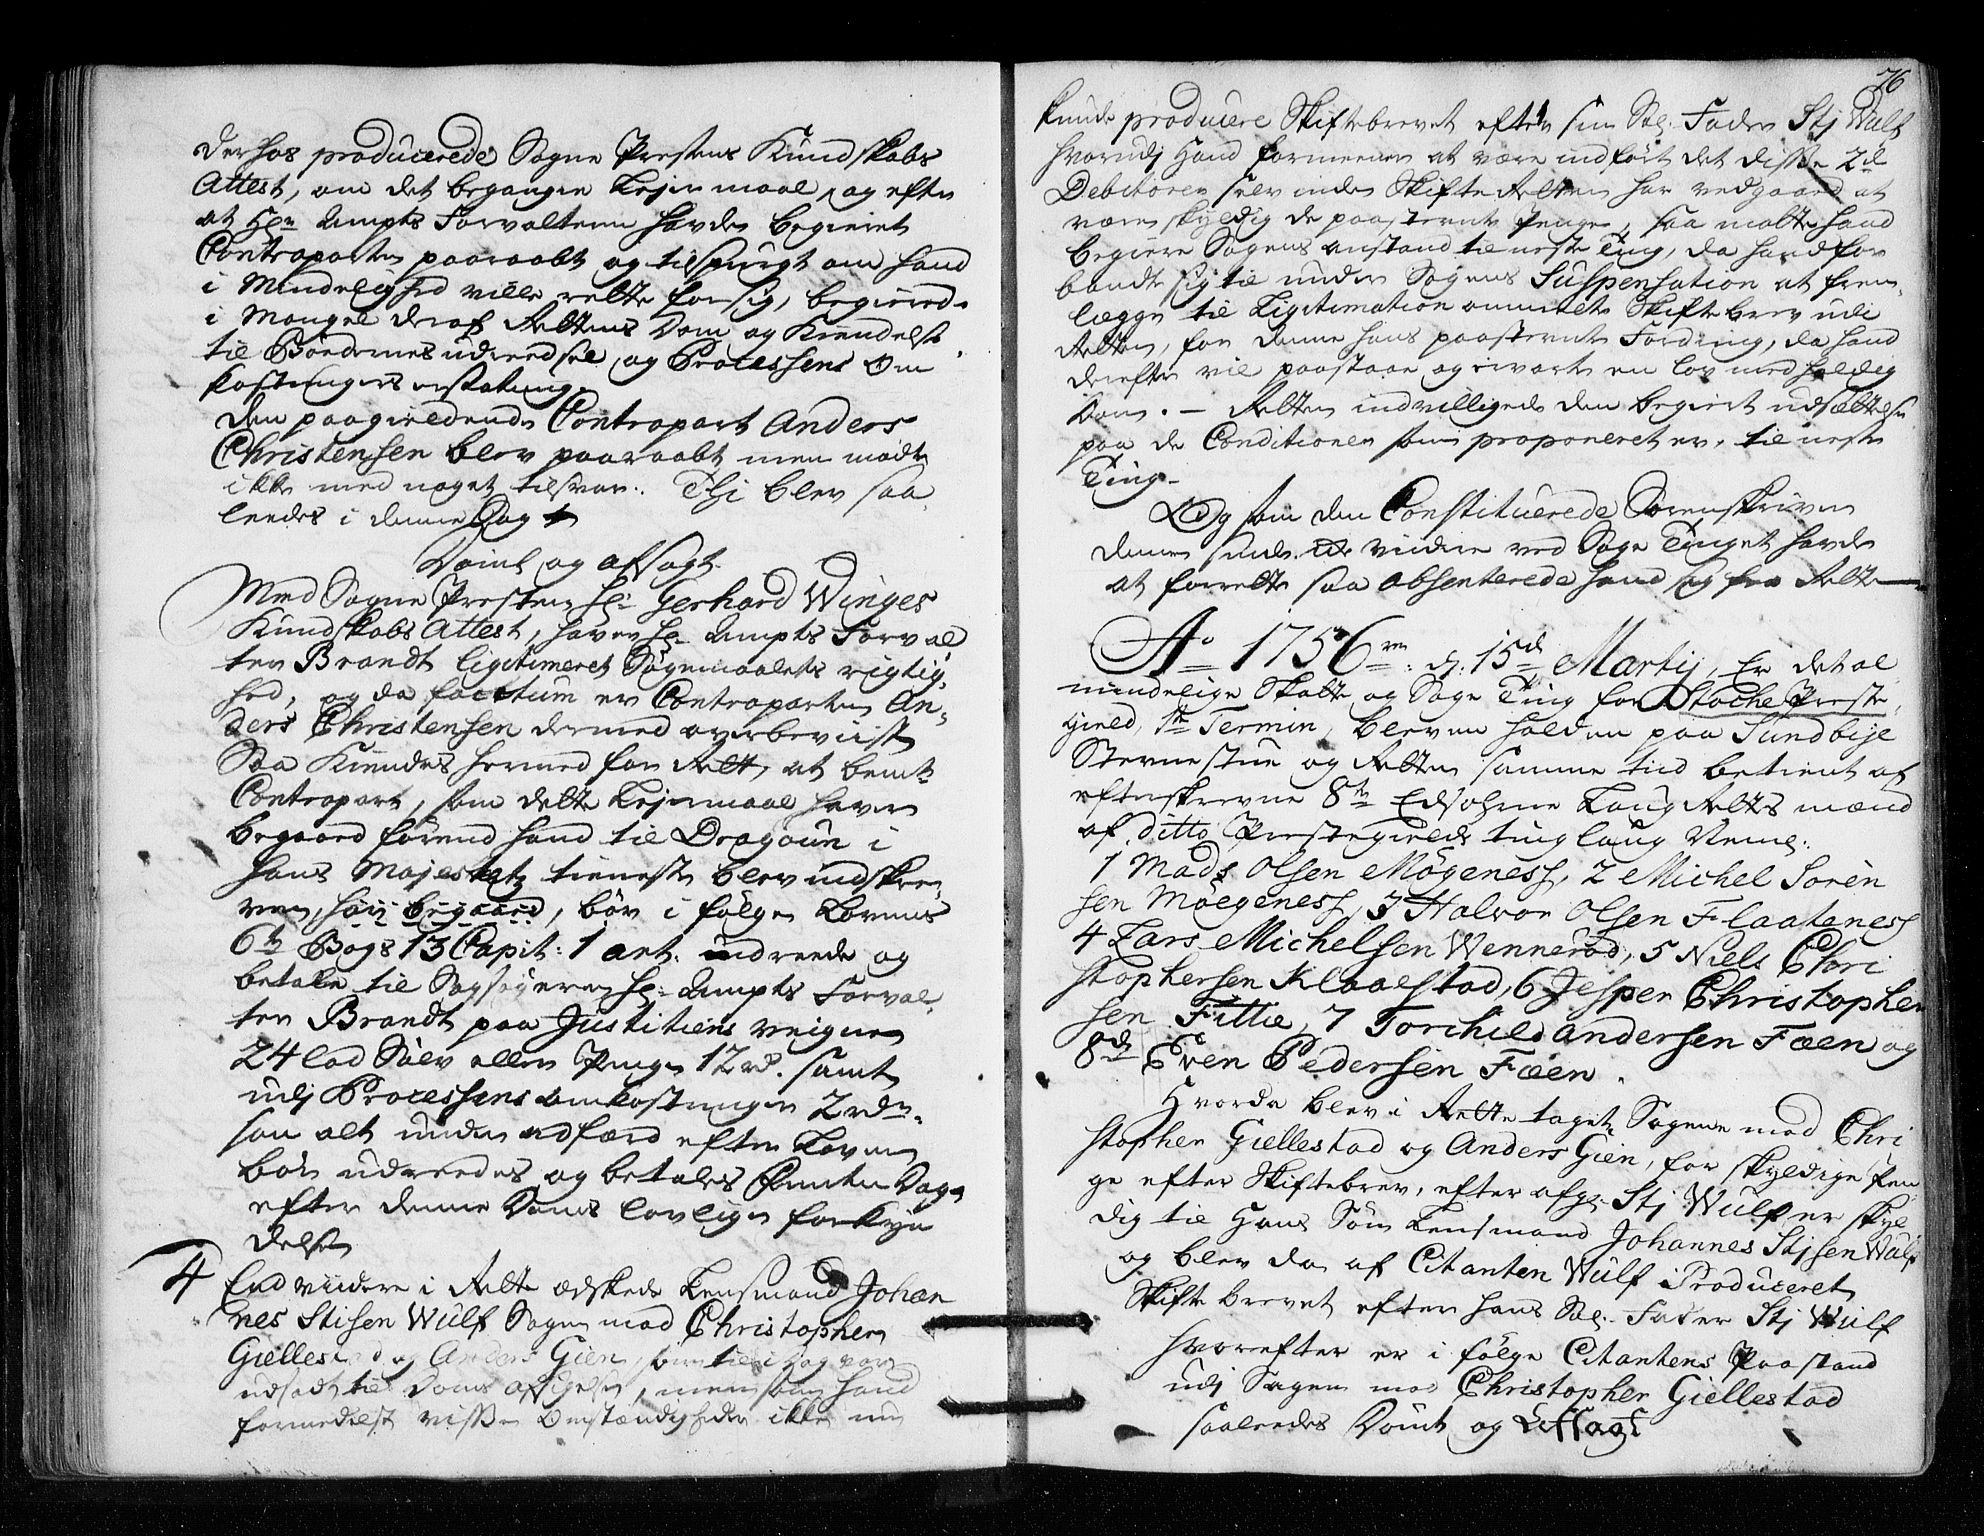 derhos producerede Sogne Prestens Kundskabs
Attest, om det begangne Lejermaal, og efter
at Hr. Ampts Forvalteren hafde begieret
Contraparten paaraabt og tilspurgt om hand
i Mindelighed ville rette for sig, begierede
i Mangel deraf Rettens Dom og Kiendelse
til Bødernes udreedsel og Processens Om
kostningers erstatning.
Den paagieldende Contrapart Anders
Christensen blev paaraabt men mødte
ikke med noget tilsvar. Thi blev saa
leedes i denne Sag
Dømt og afsagt.
Med Sogne Presten Hr. Gerhard Winges
Kundskabs Attest, haver Hr. Ampts Forval
ter Brandt ligitimeret Søgemaalets rigtig
hed, og da factum er Contraparten An-
ders Christensen dermed overbeviist
Saa Kiendes hermed for Rett, at bemte
Contrapart, som dette Lejermaal haver
begaaed førend hand til Dragoun i
Hans Majestetz tieneste blev indskre-
ven, bør i følge Lovens
6te Bogs 13 Capit: 1 art. udreede og
betale til Sagsøgeren Hr. Ampts Forval-
ter Brandt paa Justitiens veigne
24 lod Sølv eller Penge 12 rd. samt
udj Processens omkostninger 2 rdr.
som alt under udførd efter Loven
bør udreedes og betales femten Dage
efter denne Doms lovlige forkyn
delse
4 End viidere i Rette æskede Lensmand Johan
nes Stisen Wulf Sagen mod Christopher
Giellestad og Anders Gien, som til i Dag var
udsadt til Doms afsigelse, men som hand
formedelst visse Omstændigheder ikke nu
76
kunde producere Skiftebrevet efter sin Sal. Fader Stj Wulf
hvorudj Hand formeener at være indført det disse 2de
Debitorer selv inden Skifte Retten har vedgaaed at
være skyldig de paastevnte Penge, saa maatte hand
begiere Sagens anstand til neste Ting, da hand for
bandt sig til under Sagens Suspensation at frem-
legge til Ligitimation ommelte Skiftebrev udi
Retten, for denne hans paastevnte Fordring, da hand
derefter vil paastaae og erwarte en lov medholdig
Dom. — Retten indvilligede den begierte udsættelse
paa de Conditioner som proponeret er, til neste
Ting.
Og som den Constituerede Sorenskriver
denne sinde ei viidere ved Sage Tinget hafde
at forrette saa absenterede hand sig fra Rette
Ao 1756 d. 15de Martij, Er det al
mindelige Skatte og Sage Ting for Stocke Preste
gield, 1te Termin, bleven holden paa Sundbye
Stevnestue og Retten samme tiid betient af
efterskrevne 8te Edsohrne Laug Retts mænd
af ditto Prestegields tinglaug Neml.
1 Mads Olsen Møgeness, 2 Michel Søren
sen Møegeness, 3 Halvor Olsen Flaateness
4 Lars Michelsen Wennerød, 5 Niels Chri
stophersen Klaaestad, 6 Jesper Christopher
sen Fittie, 7 Torchild Andersen Føen og
8de Even Pedersen Føen.
Hvorda blev i Rette taget Sagene mod Chri
stopher Giellestad og Anders Gien, for skyldige Pen
ge efter Skiftebrev, efter afg. Stj Wulf er skyl
dig til Hans Søn Lensmand Johannes Stjsen Wulf
og blev da af Citanten Wulf Produceret
Skifte brevet efter hans Sal. Fader Stj Wulf
hvorefter er i følge Citantens Paastand
udj Sagen mod Christopher Giellestad
saaleedes Dømt og Affsagt